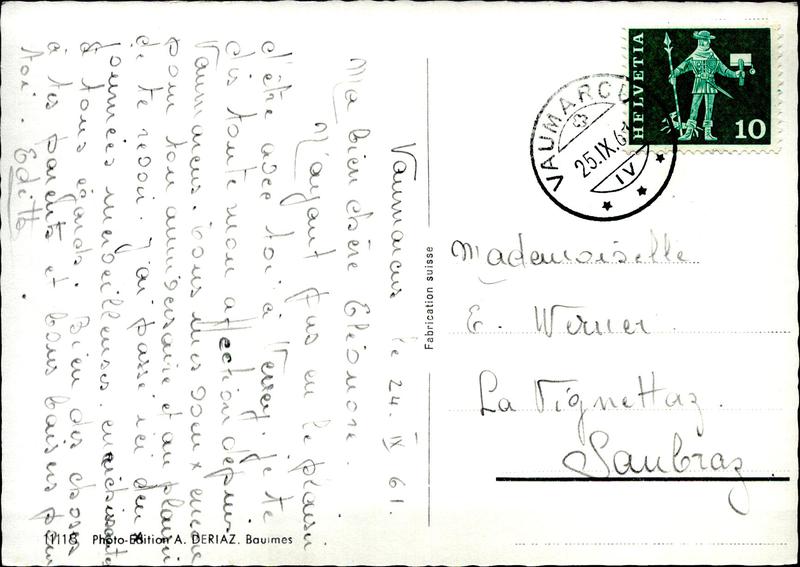 Vaumarcus le 24. IX 61.
Ma bien chère Eléonore.
N'ayant pas eu le plaisir
d'être avec toi à Vevey, je te
dis toute mon affection depuis
Vaumarcus. Tous mes voeux encore
pour ton anniversaire et au plaisir
de te revoir. J'ai passé ici deux
journées merveilleuses, enrichissantes
à tous égards. Bien des choses
à tes parents et bons baisers pour
toi. Edith.
11118 Photo-Edition A. DERIAZ. Baulmes
Fabrication suisse
HELVETIA
10
VAUMARCUS
25.IX.61
IV
Mademoiselle
E. Werner
La Vignettaz.
Saubraz